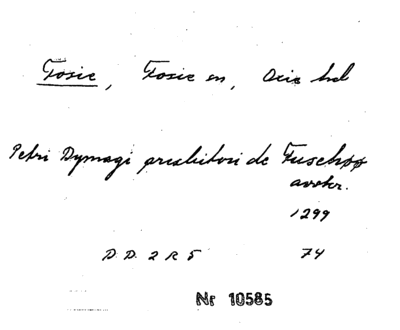 Fosie, Fosie sn, Oxie hd
Petri Dymagi presbiteri de Fuschøø
avskr.
1299
D. D. 2 R 5 74
Nr 10585